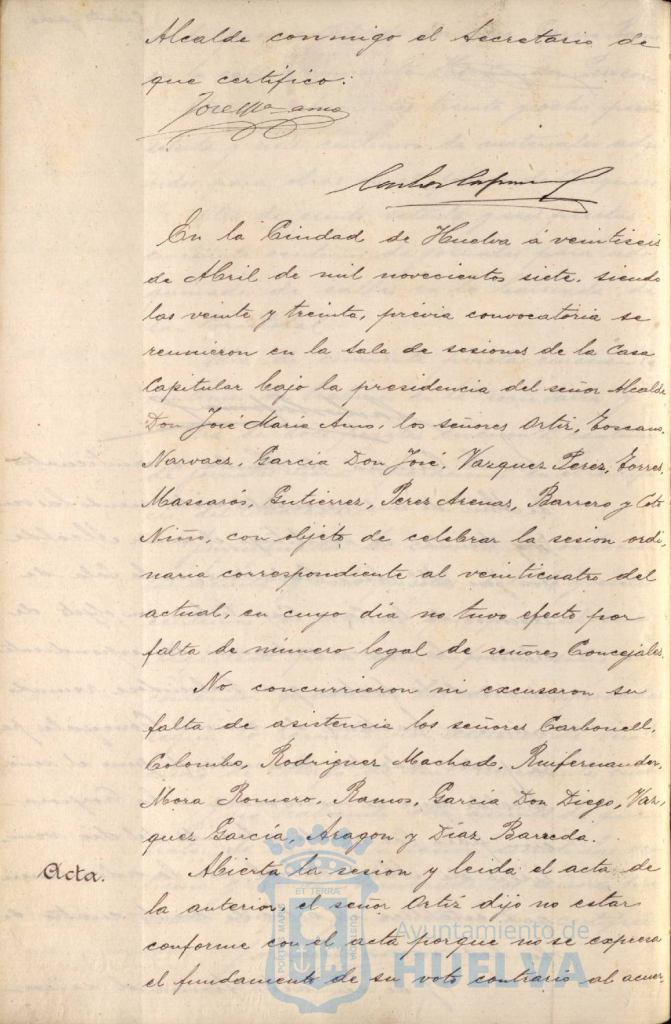 Alcalde conmigo el Secretario de
que certifico:
José Mª Amo
En la Ciudad de Huelva á veintiseis
de Abril de mil novecientos siete, siendo
las veinte y treinta, prévia convocatoria se
reunieron en la Sala de sesiones de la Casa
Capitular bajo la presidencia del señor Alcalde
Don José Maria Amo, los señores Ortiz, Toscano,
Narvaez, Garcia Don José, Vazquez Perez, Torres,
Mascarós, Gutiérrez, Perez Arenas, Barrero y Coto
Niño, con objeto de celebrar la sesion ordi-
naria correspondiente al veinticuatro del
actual, en cuyo dia no tuvo efecto por
falta de número legal de señores Concejales.
No concurrieron ni excusaron su
falta de asistencia los señores Carbonell,
Colombo, Rodriguez Machado, Ruifernandez,
Mora Romero, Ramos, Garcia Don Diego, Vaz-
quez García, Aragon y Díaz Barreda.
Acta. Abierta la sesion y leida el acta de
la anterior, el señor Ortiz dijo no estar
conforme con el acta porque no se expresa
el fundamento de su voto contrario al acuer-
PORTUS MARIS ET TERRAE CUSTODIA
Ayuntamiento de
HUELVA